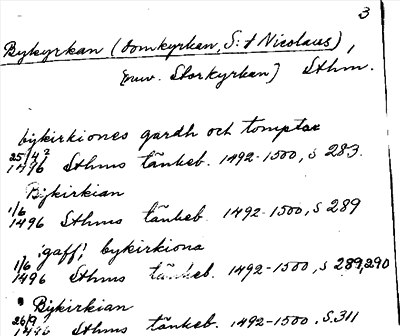 3
Bykyrkan (domkyrkan, S:t Nicolaus),
[nuv. Storkyrkan] Sthm.
bykirkiones gardh och tomptar
25/4 1496 Sthms tänkeb. 1492-1500, s 283.
Bykirkian
1/6 1496 Sthms tänkeb. 1492-1500, s 289
"gaff" bykirkiona
1/6 1496 Sthms tänkeb. 1492-1500, s 289, 290
Bykirkian
26/9 1496 Sthms tänkeb. 1492-1500. S. 311